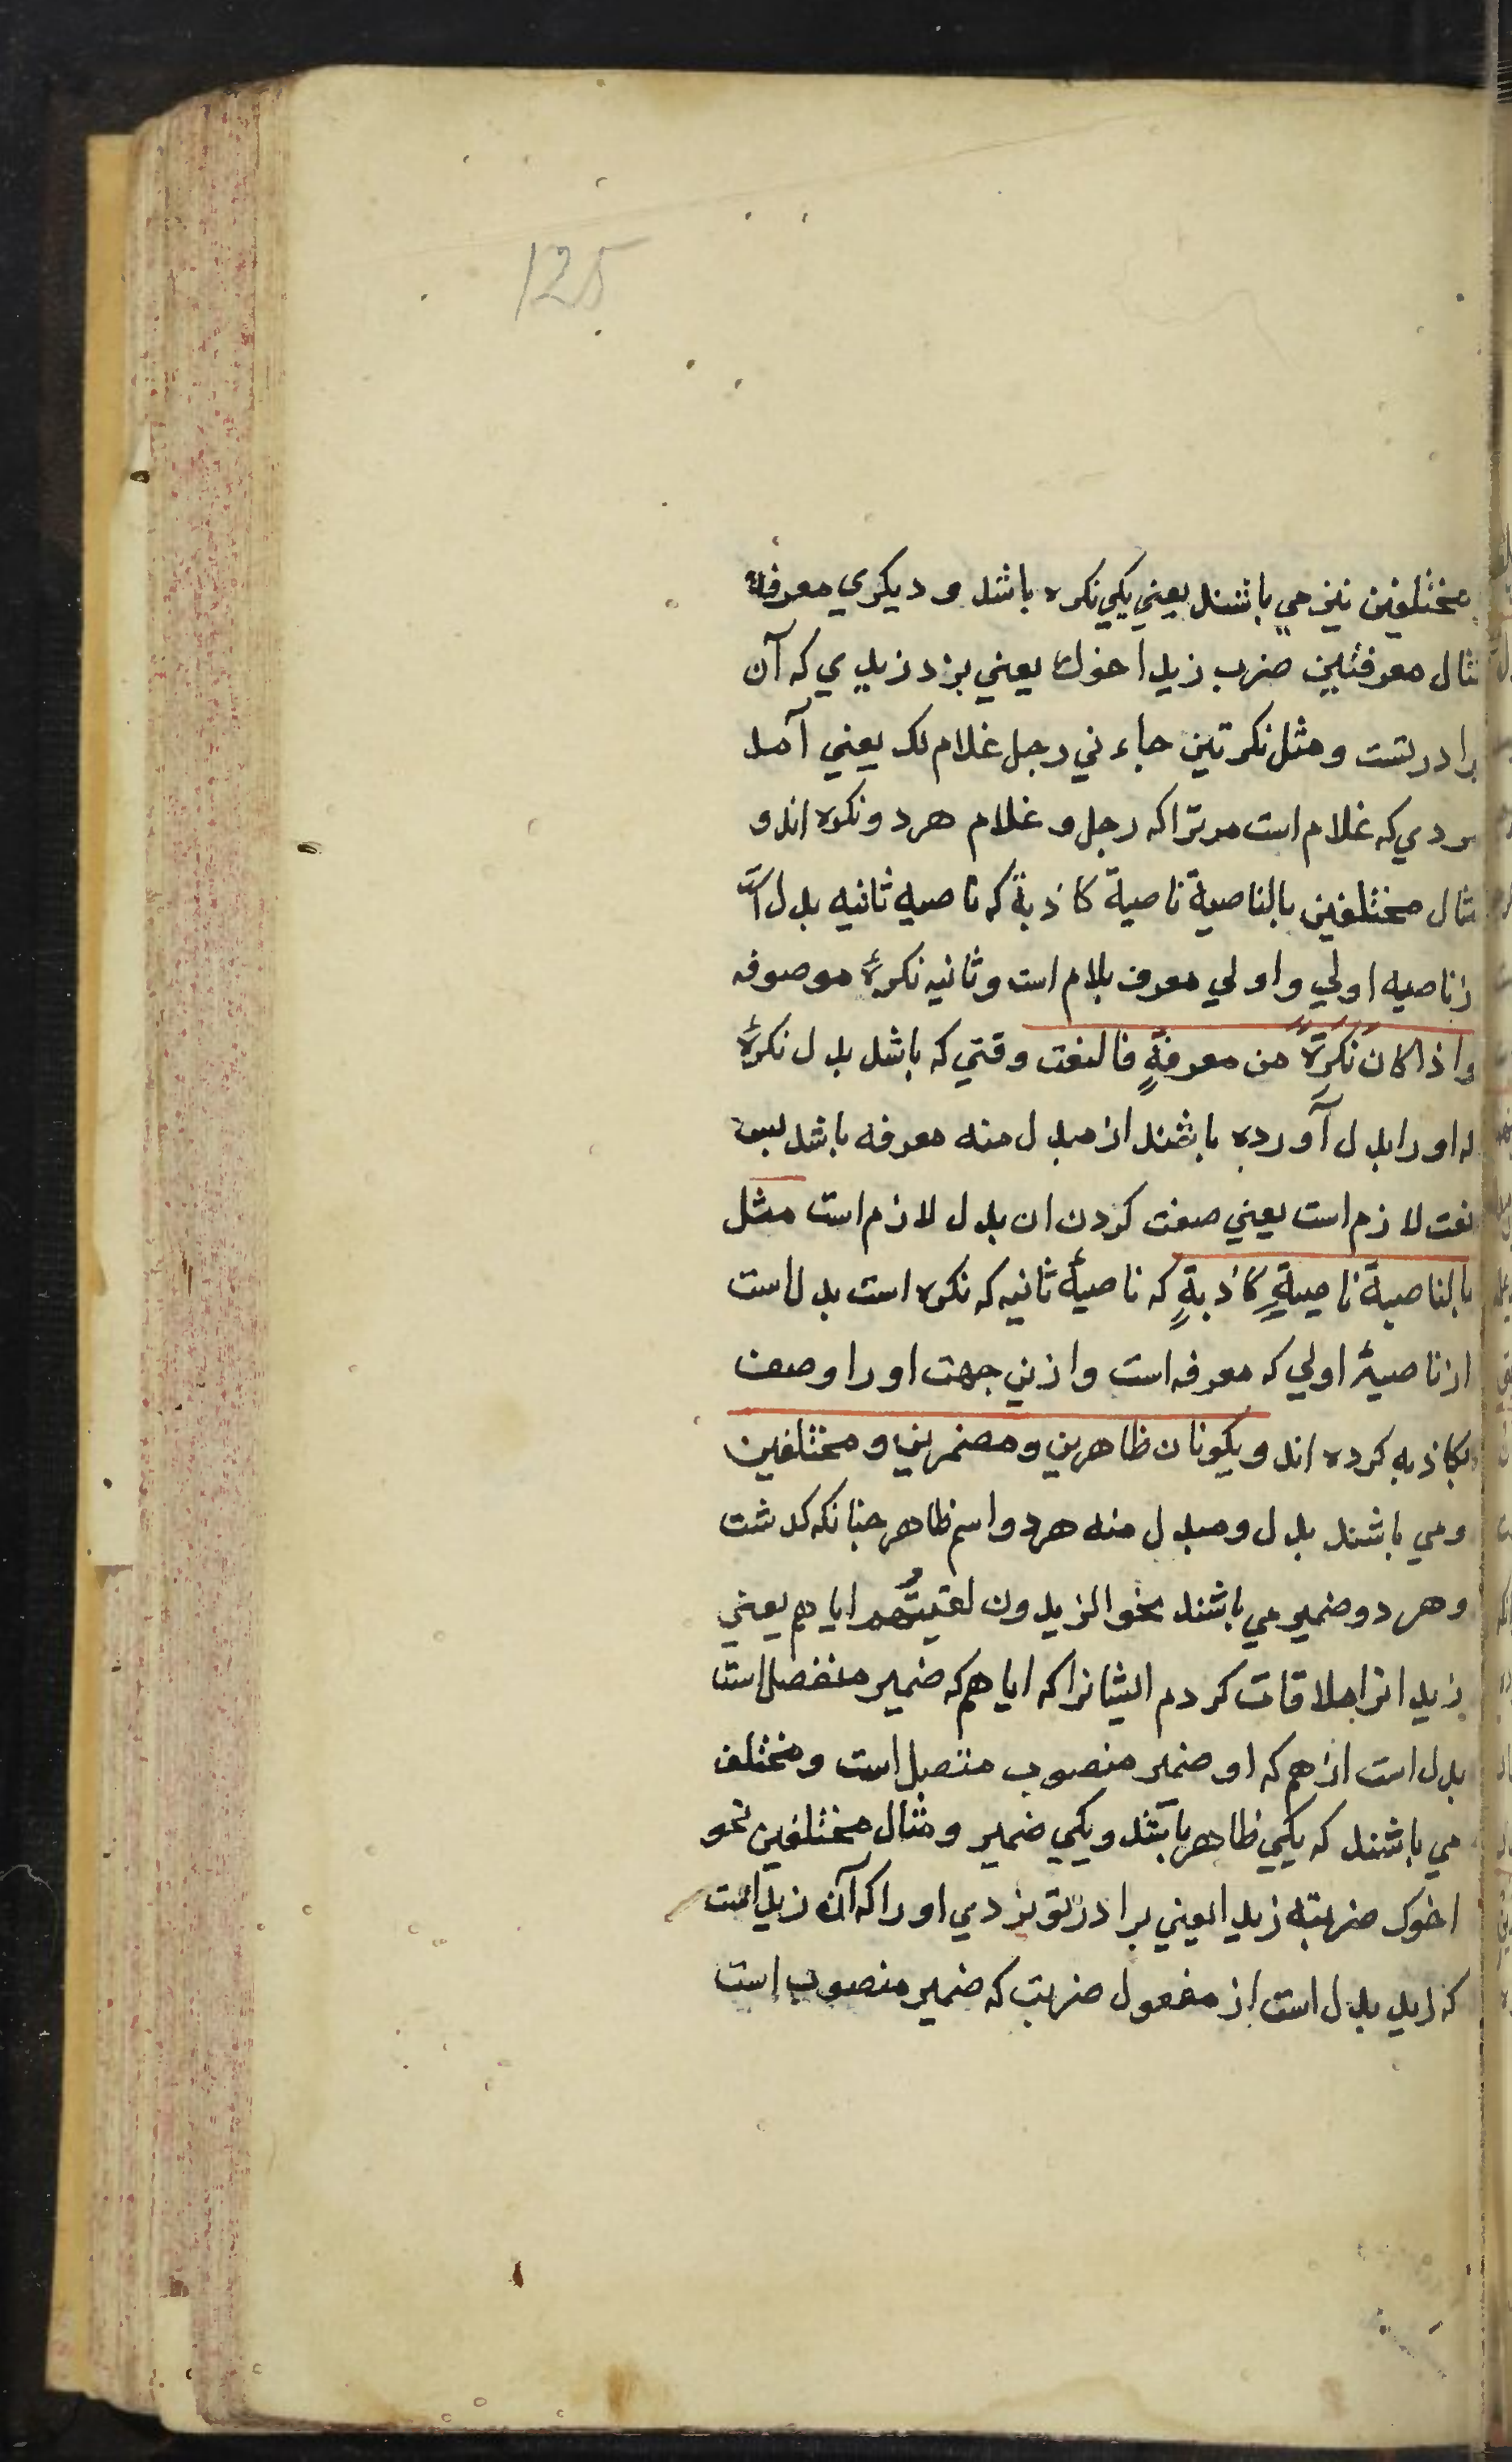 125
مختلفین نیز می باشند یعنی یکی نکره باشد و دیکری معرفه
مثال معرفتین ضرب زید اخوك یعنی بزد زیدی که آن
برادر تست و مثل نکرتین جاءنی رجل غلام لک یعنی آمد
مردی که غلام است مر ترا که رجل و غلام هر دو نکره اند و
مثال مختلفین بالناصیة ناصیة کاذبة که ناصیه ثانیه بدل است
از ناصیه اولی و اولی معرف بلام است و ثانیه نکرهٔ موصوفه
واذا کان نَکَرَةً من معرفةٍ فالنعت وقتی که باشد بدل نکرهٔ
که او را بدل آورده باشند از مبدل منه معرفه باشد پس
نعت لازم است یعنی صفت کردن ان بدل لازم است مثل
بالناصیة ناصیةٍ کاذبةٍ که ناصیهٔ ثانیه که نکره است بدل است
از ناصیهٔ اولی که معرفه است و ازین جهت او را وصف
بکاذبه کرده اند و یکونان ظاهرین و مضمرین و مختلفین
و می باشند بدل و مبدل منه هر دو اسم ظاهر چنانکه کدشت
و هر دو ضمیر می باشند نحو الزیدون لقیتُهم ایاهم یعنی
زیدانرا ملاقات کردم ایشانرا که ایاهم که ضمیر منفصل است
بدل است از هم که او ضمیر منصوب متصل است و مختلف
می باشند که یکی ظاهر باشد و یکی ضمیر و مثال مختلفین نحو
اخوک ضربته زیدا یعنی برادر تو بزدی او را که آن زید است
که زید بدل است از مفعول ضربت که ضمیر منصوب است